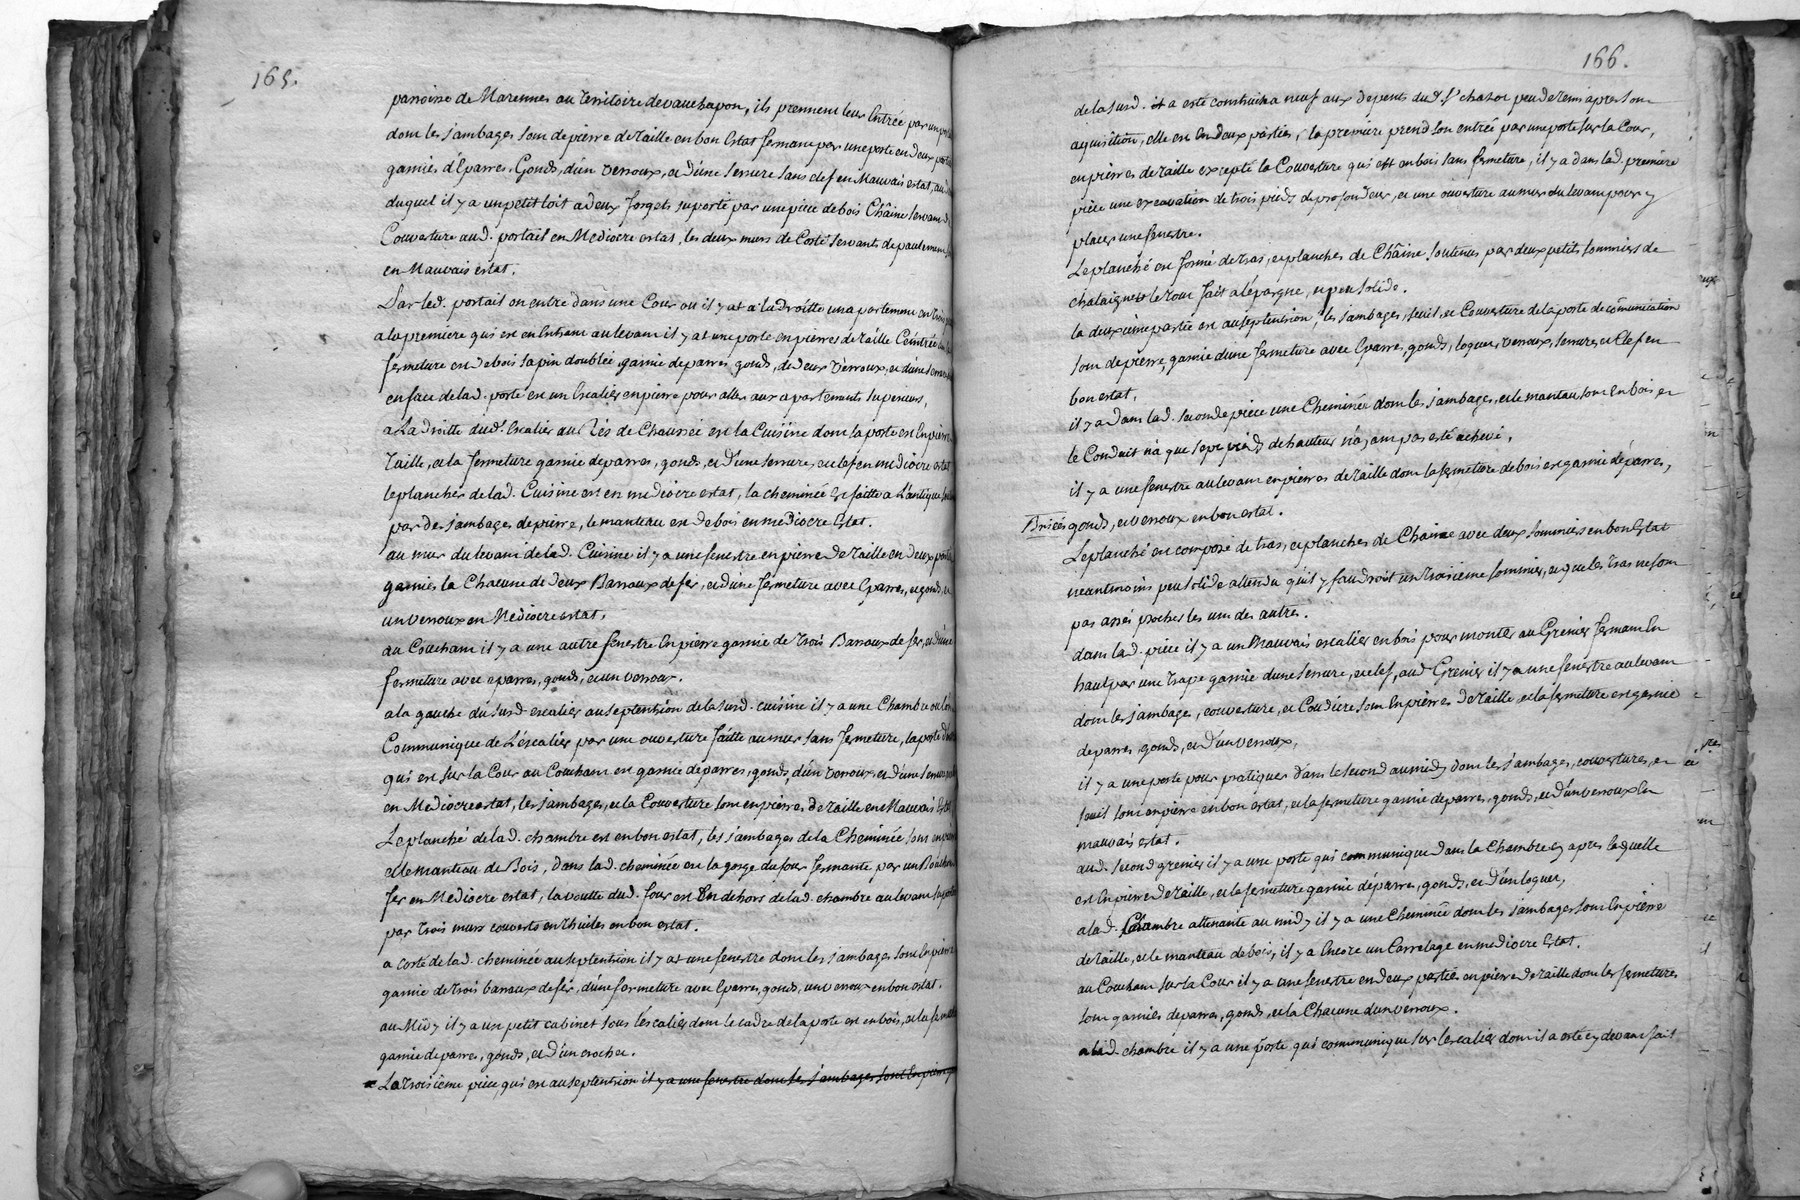 165.
parroisse de Marennes au territoire de vauchapon, ils prennent leur Entrée par un
dont les jambages sont de pierre de taille en bon Estat fermant par une porte en deux
garnies d'Eparres, Gonds, d'un verroux, et d'une serrure sans clef en Mauvais estat, au
duquel il y a un petit toit a deux forgets suporté par une piéce de bois Châine servant de
Couverture aud. portail en Mediocre estat, les deux murs de Costé servants depaulement
en Mauvais estat.
Par led. portail on entre dans une Cour ou il y at a la droitte un apartement en trois
a la premiere qui est en Entrant au levant il y at une porte en pierres de taille Ceintrée
fermeture est de bois sapin doublée, garnie deparres, gonds, de deux verroux, et d'une serrure
en face de lad. porte est un Escalier en pierre pour aller aux apartements superieurs,
a La droitte dud. Escalier au Rés de Chaussée est la Cuisine dont la porte est En pierre
Taille, et la fermeture garnie deparres, gonds, et d'une serrure, et clef en mediocre estat
le planché de lad. Cuisine est en mediocre estat, la cheminée Est faitte a L'antique
par des jambages de pierre, le manteau est de bois en mediocre Estat.
au mur du levant de lad. Cuisine il y a une fenestre en pierre de taille en deux parties
garnies la Chacune de deux Barraux de fer, et d'une férmeture avec Eparres, et gonds, et
un verroux en Mediocre estat,
au Couchant il y a une autre fenestre En pierre garnie de trois Barraux de fer, et d'une
fermeture avec eparres, gonds, et un verroux.
a la gauche du susd. escalier au septentrion de la susd. cuisine il y a une Chambre ou l'on
Communique de L'escalier par une ouverture faitte au mur sans fermeture, la porte
qui est sur la Cour au Couchant est garnie deparres, gonds, d'un verroux, et d'une serrure
en Mediocre estat, les jambages, et la Couverture sont en pierres de taille en Mauvais Estat
Le planché de lad. chambre est en bon estat, les jambages de la Cheminée sont en pierre
et le manteau de Bois, dans lad. cheminée est la gorge du four fermante par un Bouchon
fer en Mediocre estat, la voutte dud. four est En dehors de lad. chambre au levant
par trois murs couverts en Thuiles en bon estat.
a costé de lad. cheminée au septentrion il y at une fenestre dont les jambages sont En pierre
garnie de trois barraux de fér, d'une fermeture avec Eparres, gonds, un verroux en bon estat.
au Midy il y a un petit cabinet sous l'éscalier dont le cadre de la porte est en bois, et la fermeture
garnie deparres, gonds, et d'un crochet.
La troisieme piéce qui est au septentrion il y a une fenestre dont les jambages sont En pierre
166.
de la susd. et a esté construit a neuf aux depents dud. Sr. chazot peu de tems apres son
aquisition, elle est En deux parties, la premiere prend son entrée par une porte sur la Cour,
en pierres de taille excepté la Couverture qui est en bois sans fermeture, il y a dans lad. premiere
piéce une excavation de trois pieds de profondeur, et une ouverture au mur du levant pour y
placer une fenestre.
Le planché est formé de tras, et planches de Châine soutenus par deux petits sommiers de
chataigner le tout fait a l'épargne, et peu solide.
la deuxieme partie est au septentrion, les jambages, seuil, et Couverture de la porte de comunication
sont de pierre, garnie d'une fermeture avec Eparres, gonds, loquet, verroux, serrure, et Clef en
bon estat,
il y a dans lad. seconde piece une Cheminée dont les jambages, et le manteau sont En bois et
le Conduit n'a que sept pieds de hauteur n'ayant pas esté achevé,
il y a une fenestre au levant en pierres de taille dont la fermeture de bois est garnie déparres,
Brisées gonds, et verroux en bon estat.
Le planché est composé de tras, et planches de Chaine avec deux sommiers en bon Estat
neantmoins peu solide attendu qu'il y faudroit un troisieme sommier, et que les tras ne sont
pas assés proches les uns des autres.
dans lad. piéce il y a un Mauvais escalier en bois pour monter au Grenier fermant En
haut par une trape garnie d'une serrure, et clef, aud. Grenier il y a une fenestre au levant
dont les jambages, couverture, et Coudiére sont En pierres de taille, et la fermeture est garnie
deparres, gonds, et d'un verroux,
il y a une porte pour pratiquer dans le second au midy dont les jambages, couvertures, et
seuil sont en pierre en bon estat, et la fermeture garnie deparres, gonds, et d'un verroux En
mauvais estat.
aud. second grenier il y a une porte qui communique dans la Chambre cy apres laquelle
est En pierre de taille, et la fermeture garnie déparres, gonds, et d'un loquet,
a lad. Chambre attenante au midy il y a une Cheminée dont les jambages sont En pierre
de taille, et le manteau de bois, il y a Encore un Carrelage en mediocre Estat.
au Couchant sur la Cour il y a une fenestre en deux parties en pierre de taille dont les fermetures
sont garnies deparres, gonds, et la Chacune d'un verroux.
a lad. chambre il y a une porte qui communique sur l'escalier dont il a esté cy devant fait